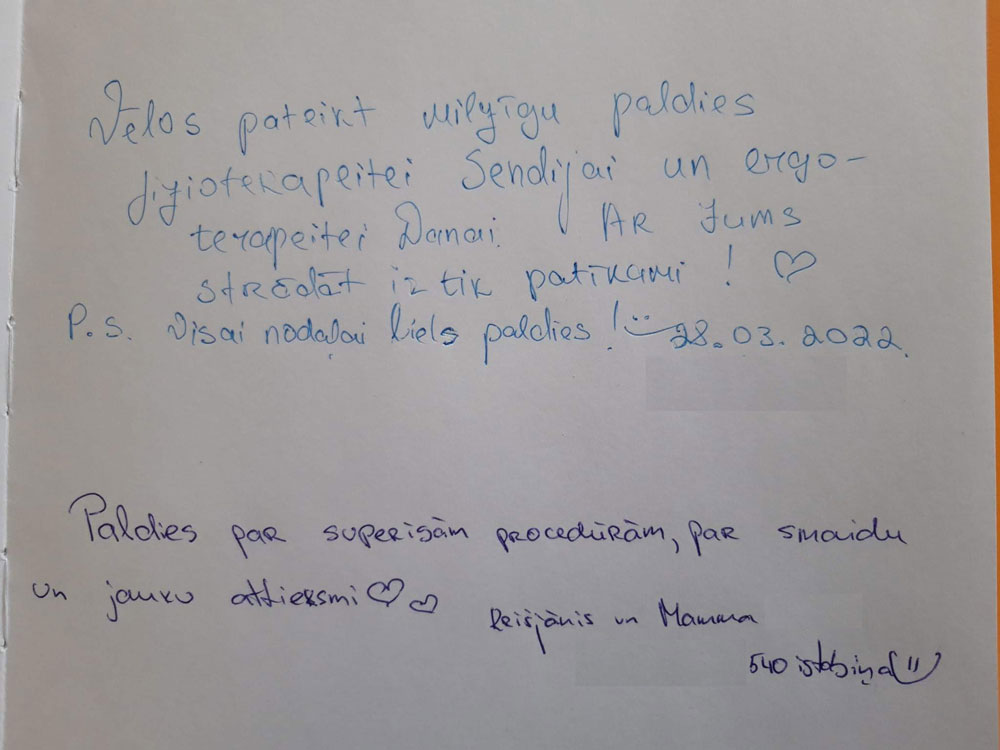 Vēlos pateikt milzīgu paldies
fizioterapeitei Sendijai un ergo-
terapeitei Danai. Ar Jums
strādāt ir tik patīkami! ♡
P.S. Visai nodaļai liels paldies! 28.03.2022.
Paldies par superīgām procedūrām, par smaidu
un jauku attieksmi ♡♡
Reišjānis un Mamma
540 istabiņa